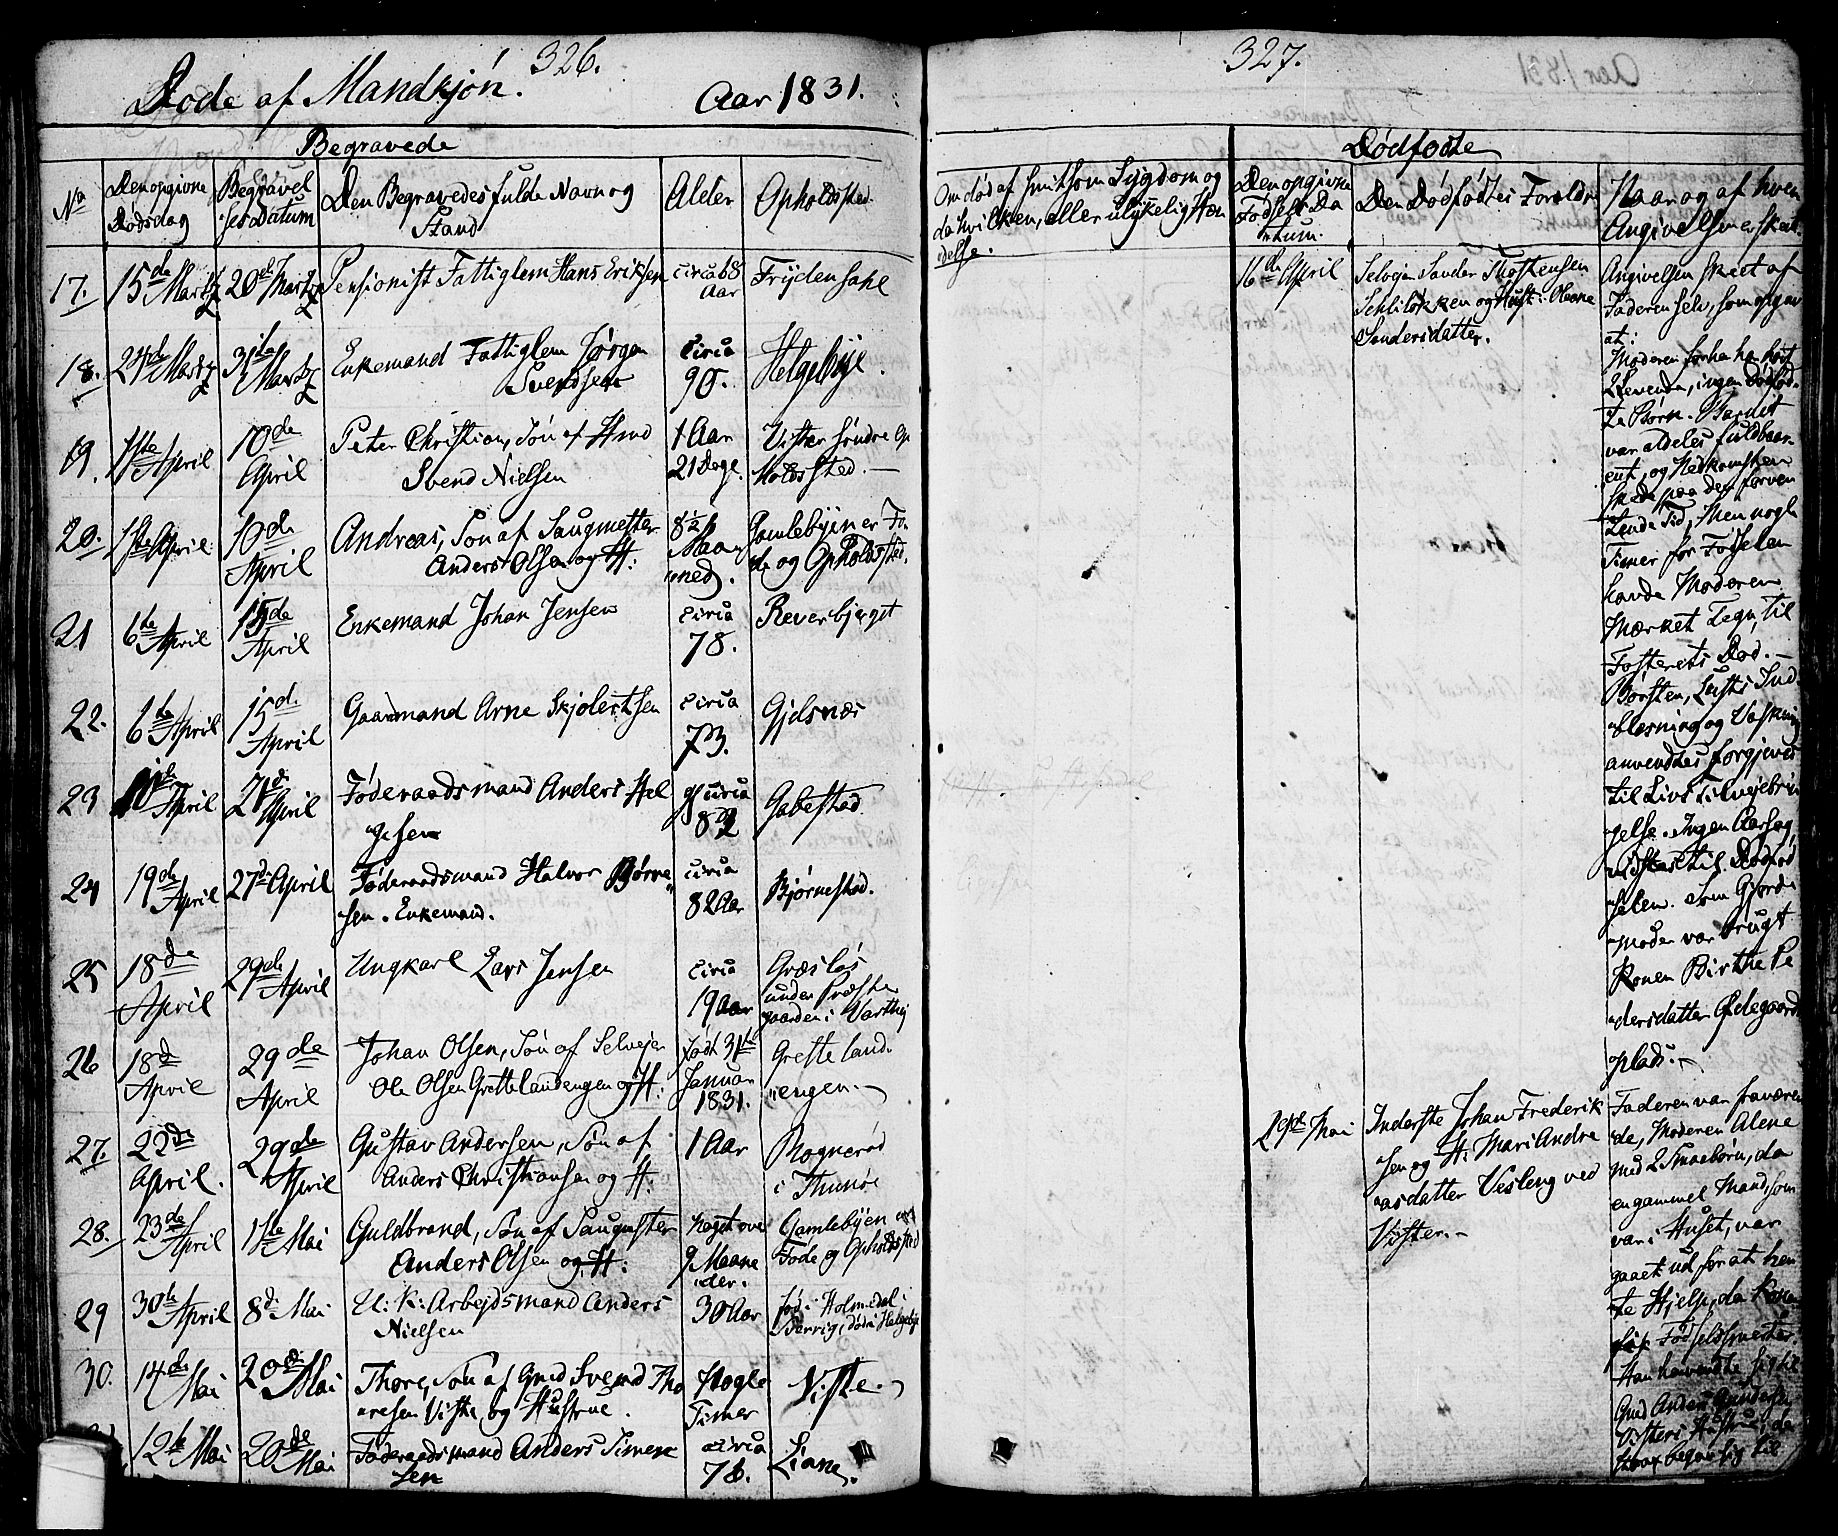 326.
Døde af Mandkjøn. Aar 1831.
Begravede
No
Den opgivne
Dødsdag
Begravel
sesdatum
Den Begravedes fulde Navn og
Stand
Alder
Opholdsted
17. 15de Martz 20de Martz Pensionist Fattiglem Hans Eriksen circa 68
Aar
Frydensahl
18. 24de Martz 31te Martz Enkemand Fattiglem Jørgen
Svendsen
circa
90.
Helgebye.
19. 1ste April 10de
April
Peter Christian, Søn af Hmd
Svend Nielsen
1 Aar
21 Dage.
Vister søndre Op
holdssted.
20. 1ste April 10de
April
Andreas, Søn af Saugmester
Anders Olsen og H:
8½
Maa
ned.
Gamlebyen er Fø
de og Opholdssted.
21 6te April 15de
April
Enkemand Johan Jensen
circa
78.
Reverbjerget
22. 6te April 15de
April
Gaardmand Arne Skjolertsen
circa
73.
Gjelsnæs
23 April 21de April Føderaadsmand Anders Hel
gesen
circa
82
Gabestad.
24 19de April 27de April Føderaadsmand Halvor Børre
sen. Enkemand.
circa
82 Aar
Bjørnestad.
25 18de
April
29de
April
Ungkarl Lars Jensen
circa
19 Aar
Græsløs
under Præste
gaarden i
26 18de
April
29de
April
Johan Olsen, Søn af Selvejer
Ole Olsen Grettelandengen og H:
født 31te
Januar
1831.
Grette land
engen.
27. 22de
April.
29de
April
Gustav Andersen, Søn af
Anders Christiansen og H:
1 Aar
Rognerød
i Thunøe
28. 23de
April
1ste Mai
Guldbrand, Søn af Saugmester
Anders Olsen og H:
Noget over
9 Maane
der.
Gamlebyen er
Føde og Opholdssted
29 30te April 8de Mai U: K: Arbejdsmand Anders
Nielsen
30 Aar
fød i Holmedal i
Sverrig, død i Helgebye
30. 14de
Mai
20de
Mai
Thore, Søn af Gmd Svend Tho
resen Viste og Hustrue.
Nogle
Timer
Viste.
12te Mai 20de
Mai
Føderaadsmand Anders Simen
sen
circa
76.
Liane.
327.
Om død af smitsom Sygdom og
da hvilken, eller ulykkelig Hæn
delse.
Dødfødte
Den opgivne
Fødsels Da
tum.
Den Dødfødtes Forældre
Naar og af hvem
Angivelsen er skeet.
16de April
Selvejer Sander Thostensen
Schliløkken og Hust: Oleane
Sandersdatter.
Angivelsen skeet af
Faderen selv, som opgav
at:
Moderen forhen har havt
2 levende, ingen dødfød
te Børn. Barnet
var aldeles fuldbaar
ent, og Nedkomsten
skede paa den forven
tende Tid, Men nogle
Timer før Fødselen
havde Moderen
Mærket Tegn til
Fosterets Død.
Børsten, Lufts Ind
blæsning og Vaskning
anvendtes forgjeves
til Livs tilvejebrin
gelse. Ingen Aarsag
vidstes til Dødfød
selen. Som Gjord
moder var brugt
Konen Birthe Pe
dersdatter Ødegaards
plads.
29de Mai
Inderste Johan Frederik
sen og H: Mari Andre
asdatter Vesleng ved
Vister.
Faderen var fraværen
de, Moderen Alene
med 2 Smaabørn, da
en gammel Mand, som
var i Huset, var
gaaet ud for at hen
te Hjelp, da Konen
fik Fødselssmerter.
Han henvendte sig til
Gmd Anders Gundersen
Visters Hustrue, da
begav sig til